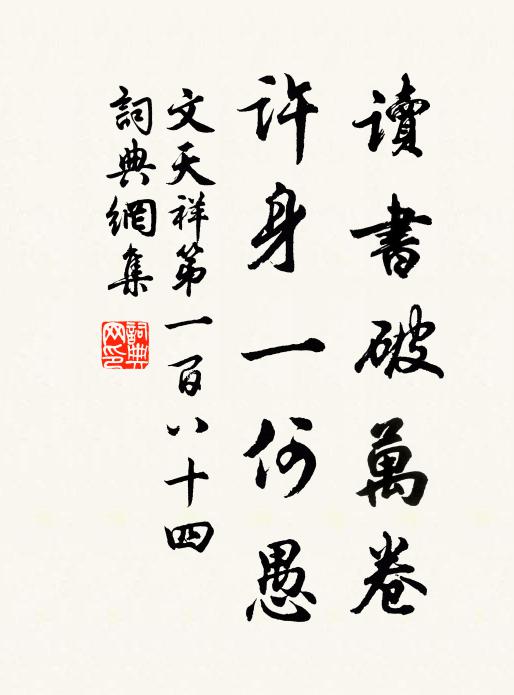 讀書破萬卷
許身一何愚
文天祥第一百八十四
詞典網集
詞典網印